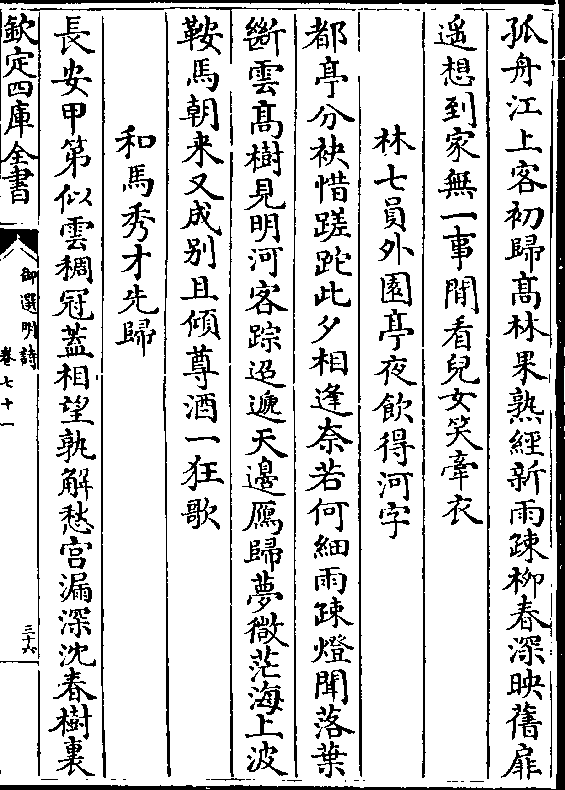 孤舟江上客初歸髙林果熟經新雨疎栁春深映舊扉
遥想到家無一事閒看兒女笑牽衣
林七員外園亭夜飲得河字
都亭分袂惜蹉跎此夕相逢奈若何細雨疎燈聞落葉
斷雲髙樹見明河客踪迢遞天邊鴈歸夢微茫海上波
鞍馬朝来又成别且傾尊酒一狂歌
和馬秀才先歸
長安甲第似雲稠冠蓋相望孰解愁宫漏深沈春樹裏
欽定四庫全書
御選明詩
卷七十一
三十六